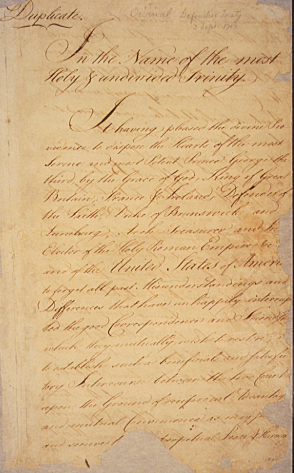 Duplicate.
Original Definitive Treaty
3 Sept. 1783
In the Name of the most
Holy & undivided Trinity.
It having pleased the divine Pro
vidence to dispose the Hearts of the most
Serene and most Potent Prince George the
third by the Grace of God, King of Great
Britain, France & Ireland, Defender of
the Faith, Duke of Brunswick and
Lunebourg, Arch Treasurer and
Elector of the Holy Roman Empire &c.
and of the United States of America
to forget all past Misunderstandings and
Differences that have unhappily interrup
ted the good Correspondence and Friendship
which they mutually wish to restore;
to establish such a beneficial and satisfac
tory Intercourse between the two Countries
upon the Ground of reciprocal Advantages
and mutual Convenience as may
and secure perpetual Peace & Harmony